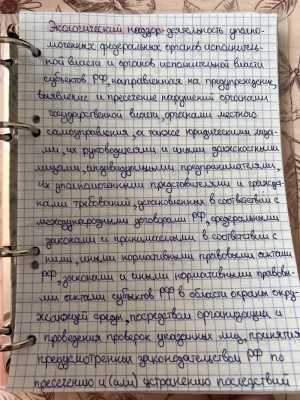 Экологический надзор-деятельность уполно-
моченных федеральных органов исполнитель-
ной власти и органов исполнительной власти
субъектов РФ, направленная на предупреждение,
выявление и пресечение нарушений органами
государственной власти, органами местного
самоуправления, а также юридическими лица-
ми, их руководителями и иными должностными
лицами, индивидуальными предпринимателями,
их уполномоченными представителями и гражда-
нами требований, установленных в соответствии с
международными договорами РФ, федеральными
законами и принимаемыми в соответствии с
ними, иными нормативными правовыми актами
РФ, законами и иными нормативными правовы-
ми актами субъектов РФ в области охраны окру-
жающей среды, посредством организации и
проведения проверок указанных лиц, принятия
предусмотренных законодательством РФ по
пресечению и (или) устранению последствий